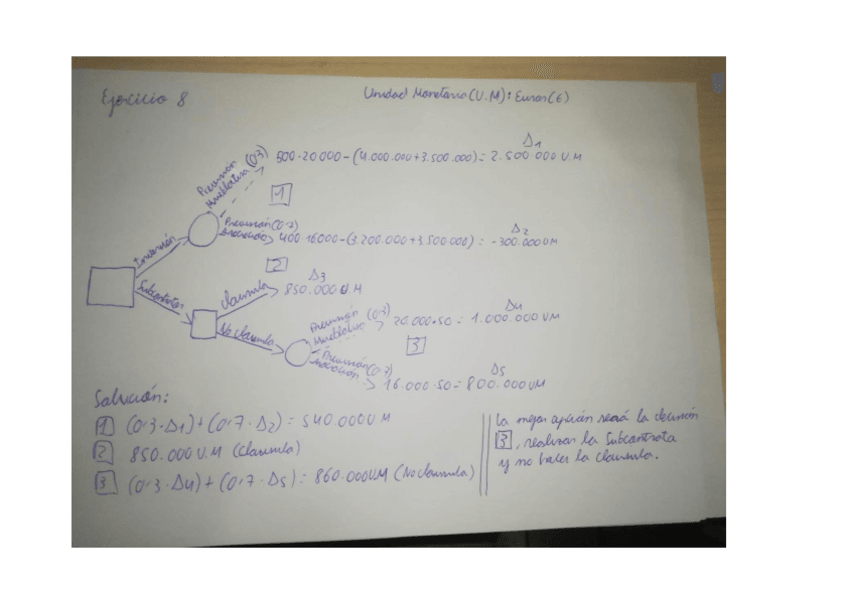 Ejercicio 8
Unidad Monetaria (U.M): Euros (€)
Previsión
Mueblativa (0'3)
500·20000-(4.000.000+3.500.000)= 2.500.000 U.M
Δ1
1
Inversión
Previsión (0'7)
400·16000-(3.200.000+3.500.000) = -300.000 UM
Δ2
2
Subcontrata
Clausula
850.000 U M
Δ3
No clausula
Previsión (0'3)
Mueblativa
20.000·50 = 1.000.000 UM
Δ4
3
Previsión (0'7)
16.000·50 = 800.000 UM
Δ5
Solución:
1 (0'3·Δ1)+(0'7·Δ2) = 540.000 U M
2 850.000 U.M (Clausula)
3 (0'3·Δ4)+(0'7·Δ5) = 860.000 UM (No clausula)
La mejor opción será la decisión
3, realizar la Subcontrata
y no hacer la clausula.